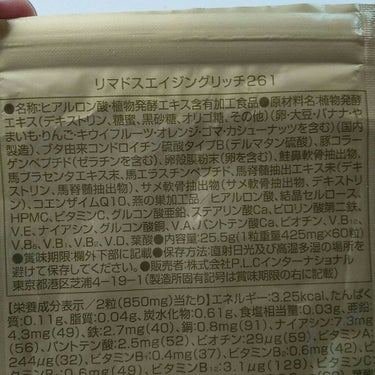 リマドスエイジングリッチ261
●名称:ヒアルロン酸・植物発酵エキス含有加工食品●原材料名:植物発酵
エキス(デキストリン、糖蜜、黒砂糖、オリゴ糖、その他)(卵・大豆・バナナ・
やまいも・りんご・キウイフルーツ・オレンジ・ゴマ・カシューナッツを含む)(国内
製造)、ブタ由来コンドロイチン硫酸タイプB(デルマタン硫酸)、豚コラー
ゲンペプチド(ゼラチンを含む)、卵殻膜粉末(卵を含む)、鮭鼻軟骨抽出物、
馬プラセンタエキス末、馬エラスチンペプチド、馬脊髄抽出エキス末(デキス
トリン、馬脊髄抽出物)、サメ軟骨抽出物(サメ軟骨抽出物、デキストリ
ン)、コエンザイムQ10、燕の巣加工品 ヒアルロン酸、結晶セルロース、
HPMC、ビタミンC、グルコン酸亜鉛、ステアリン酸Ca、ピロリン酸第二鉄、
V.E、ナイアシン、グルコン酸銅、V.A、パントテン酸Ca、ビオチン、V.B₁₂、
V.B₆、V.B₁、V.B₂、V.D、葉酸 ●内容量:25.5g(1粒重量425mg×60粒)
●賞味期限:欄外下部に記載●保存方法:直射日光及び高温多湿の場所を
避けて保存してください。●販売者:株式会社P.L.Cインターナショナル
東京都港区芝浦4-19-1(製造所固有記号は賞味期限の右に記載)
【栄養成分表示/2粒(850mg)当たり】エネルギー:3.25kcal、たんぱく
質:0.11g、脂質:0.04g、炭水化物:0.61g、食塩相当量:0.03g、亜鉛:
4.3mg(49)、鉄:2.7mg(40)、銅:0.8mg(91)、ナイアシン:7.3mg
(56)、パントテン酸:2.5mg(52)、ビオチン:29μg(59)、ビタミンA:
244μg(32)、ビタミンB₁:0.4mg(37)、ビタミンB₂:0.6mg(42)、
B₆:0.6mg(49)、ビタミンB₁₂:3.1μg(128)、